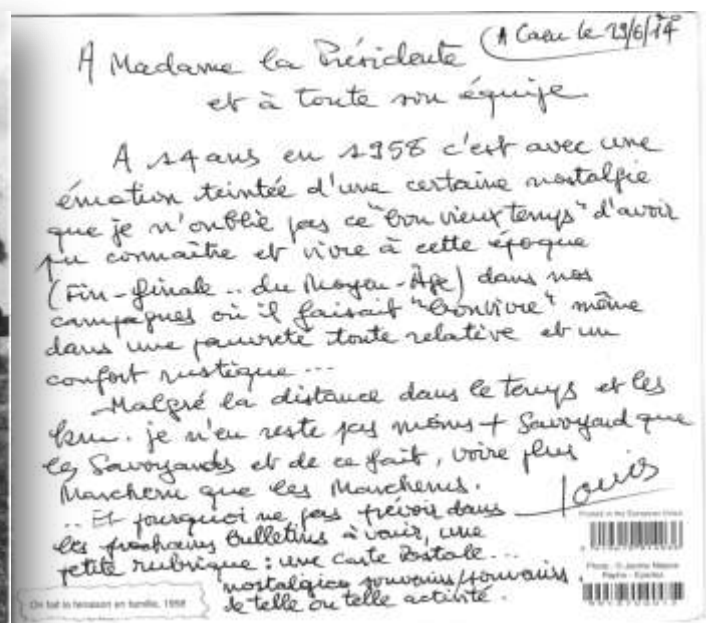 A Caen le 29/6/14
A Madame la Présidente
et à toute son équipe.
A 14 ans en 1958 c'est avec une
émotion teintée d'une certaine nostalgie
que je n'oublie pas ce "bon vieux temps" d'avoir
pu connaître et vivre à cette époque
(Fin-finale .. du Moyen-Âge) dans nos
campagnes où il faisait "bonvivre" même
dans une pauvreté toute relative et un
confort rustique ...
Malgré la distance dans le temps et les
km. je n'en reste pas moins + Savoyard que
les Savoyards et de ce fait, voire plus
Marcheru que les Marcherus.
Louis
.. Et pourquoi ne pas prévoir dans
les prochains Bulletins à venir, une
petite rubrique : une Carte Postale ...
nostalgico souvenirs/souvenirs,
de telle ou telle activité.
Printed in the European Union
On bat la fenaison en famille, 1958